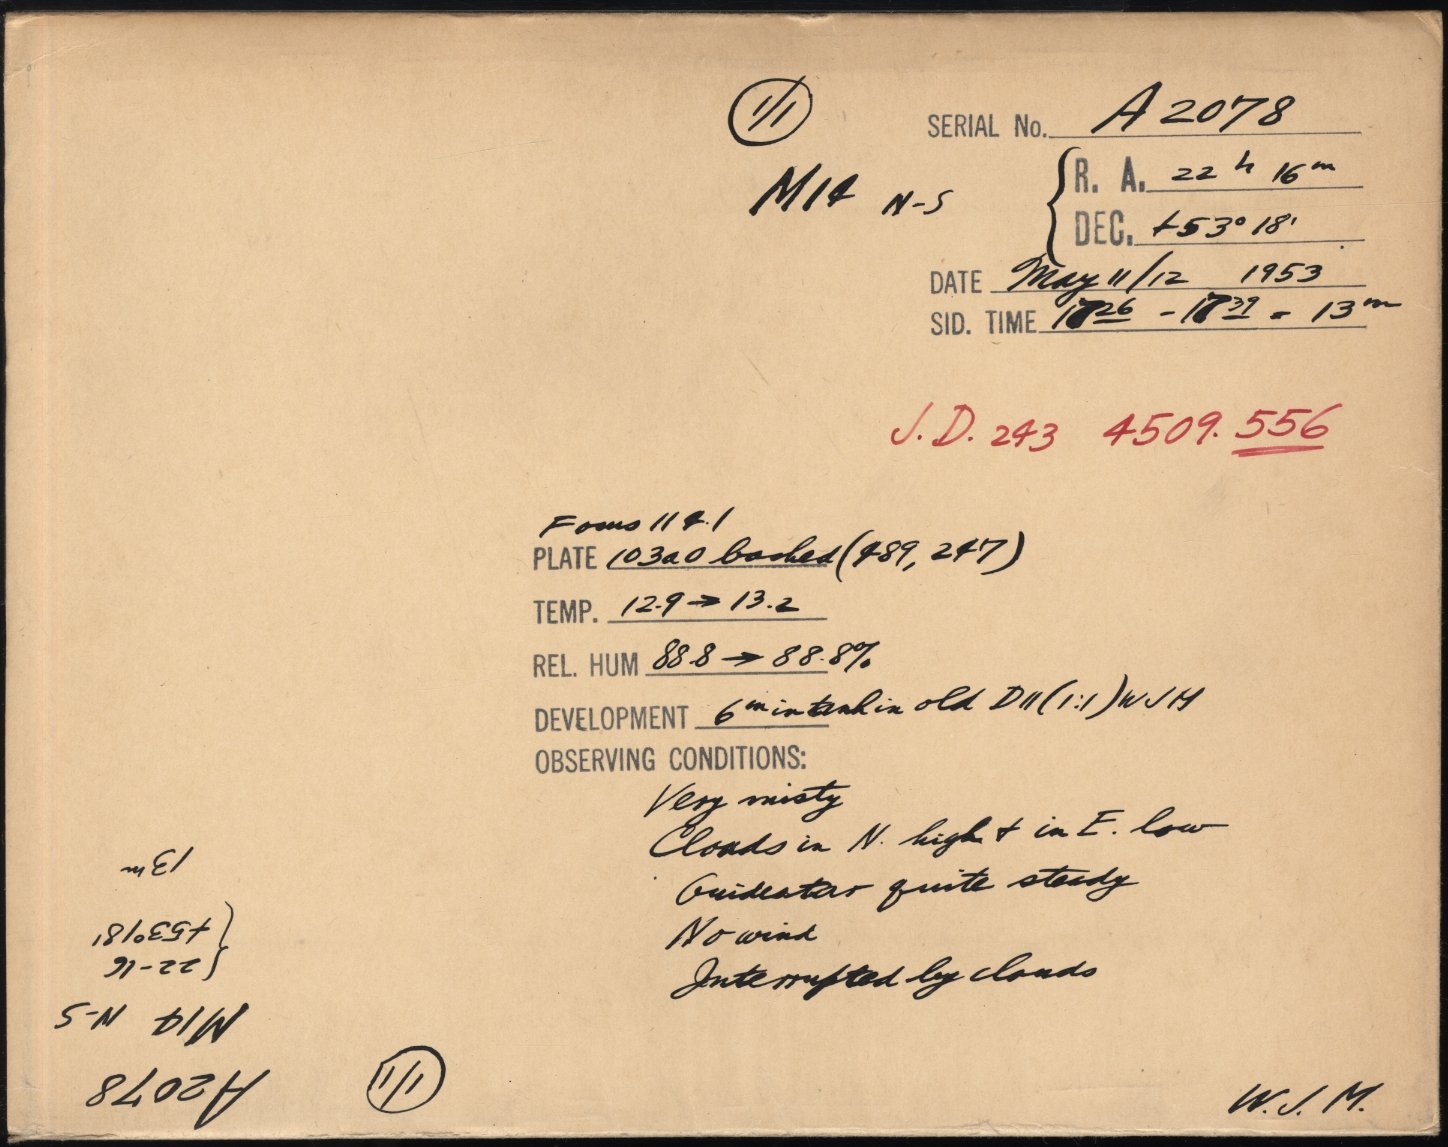 1/1
SERIAL No. A 2078
M14 N-S
R. A. 22 h 16 m
DEC. +53° 18'
DATE May 11/12 1953
SID. TIME 26 - 39 = 13 m
J.D. 243 4509.556
Focus 114.1
PLATE 103a0 bached (489, 247)
TEMP. 12.9 → 13.2
REL. HUM 88.8 → 88.8%
DEVELOPMENT 6 m in tank in old D11 (1:1) WJM
OBSERVING CONDITIONS:
Very misty
Clouds in N. high & in E. low
Guidestar quite steady
No wind
Interrupted by clouds
W. J. M.
1/1
A2078
M14 N-S
22-16
+53°18'
13m